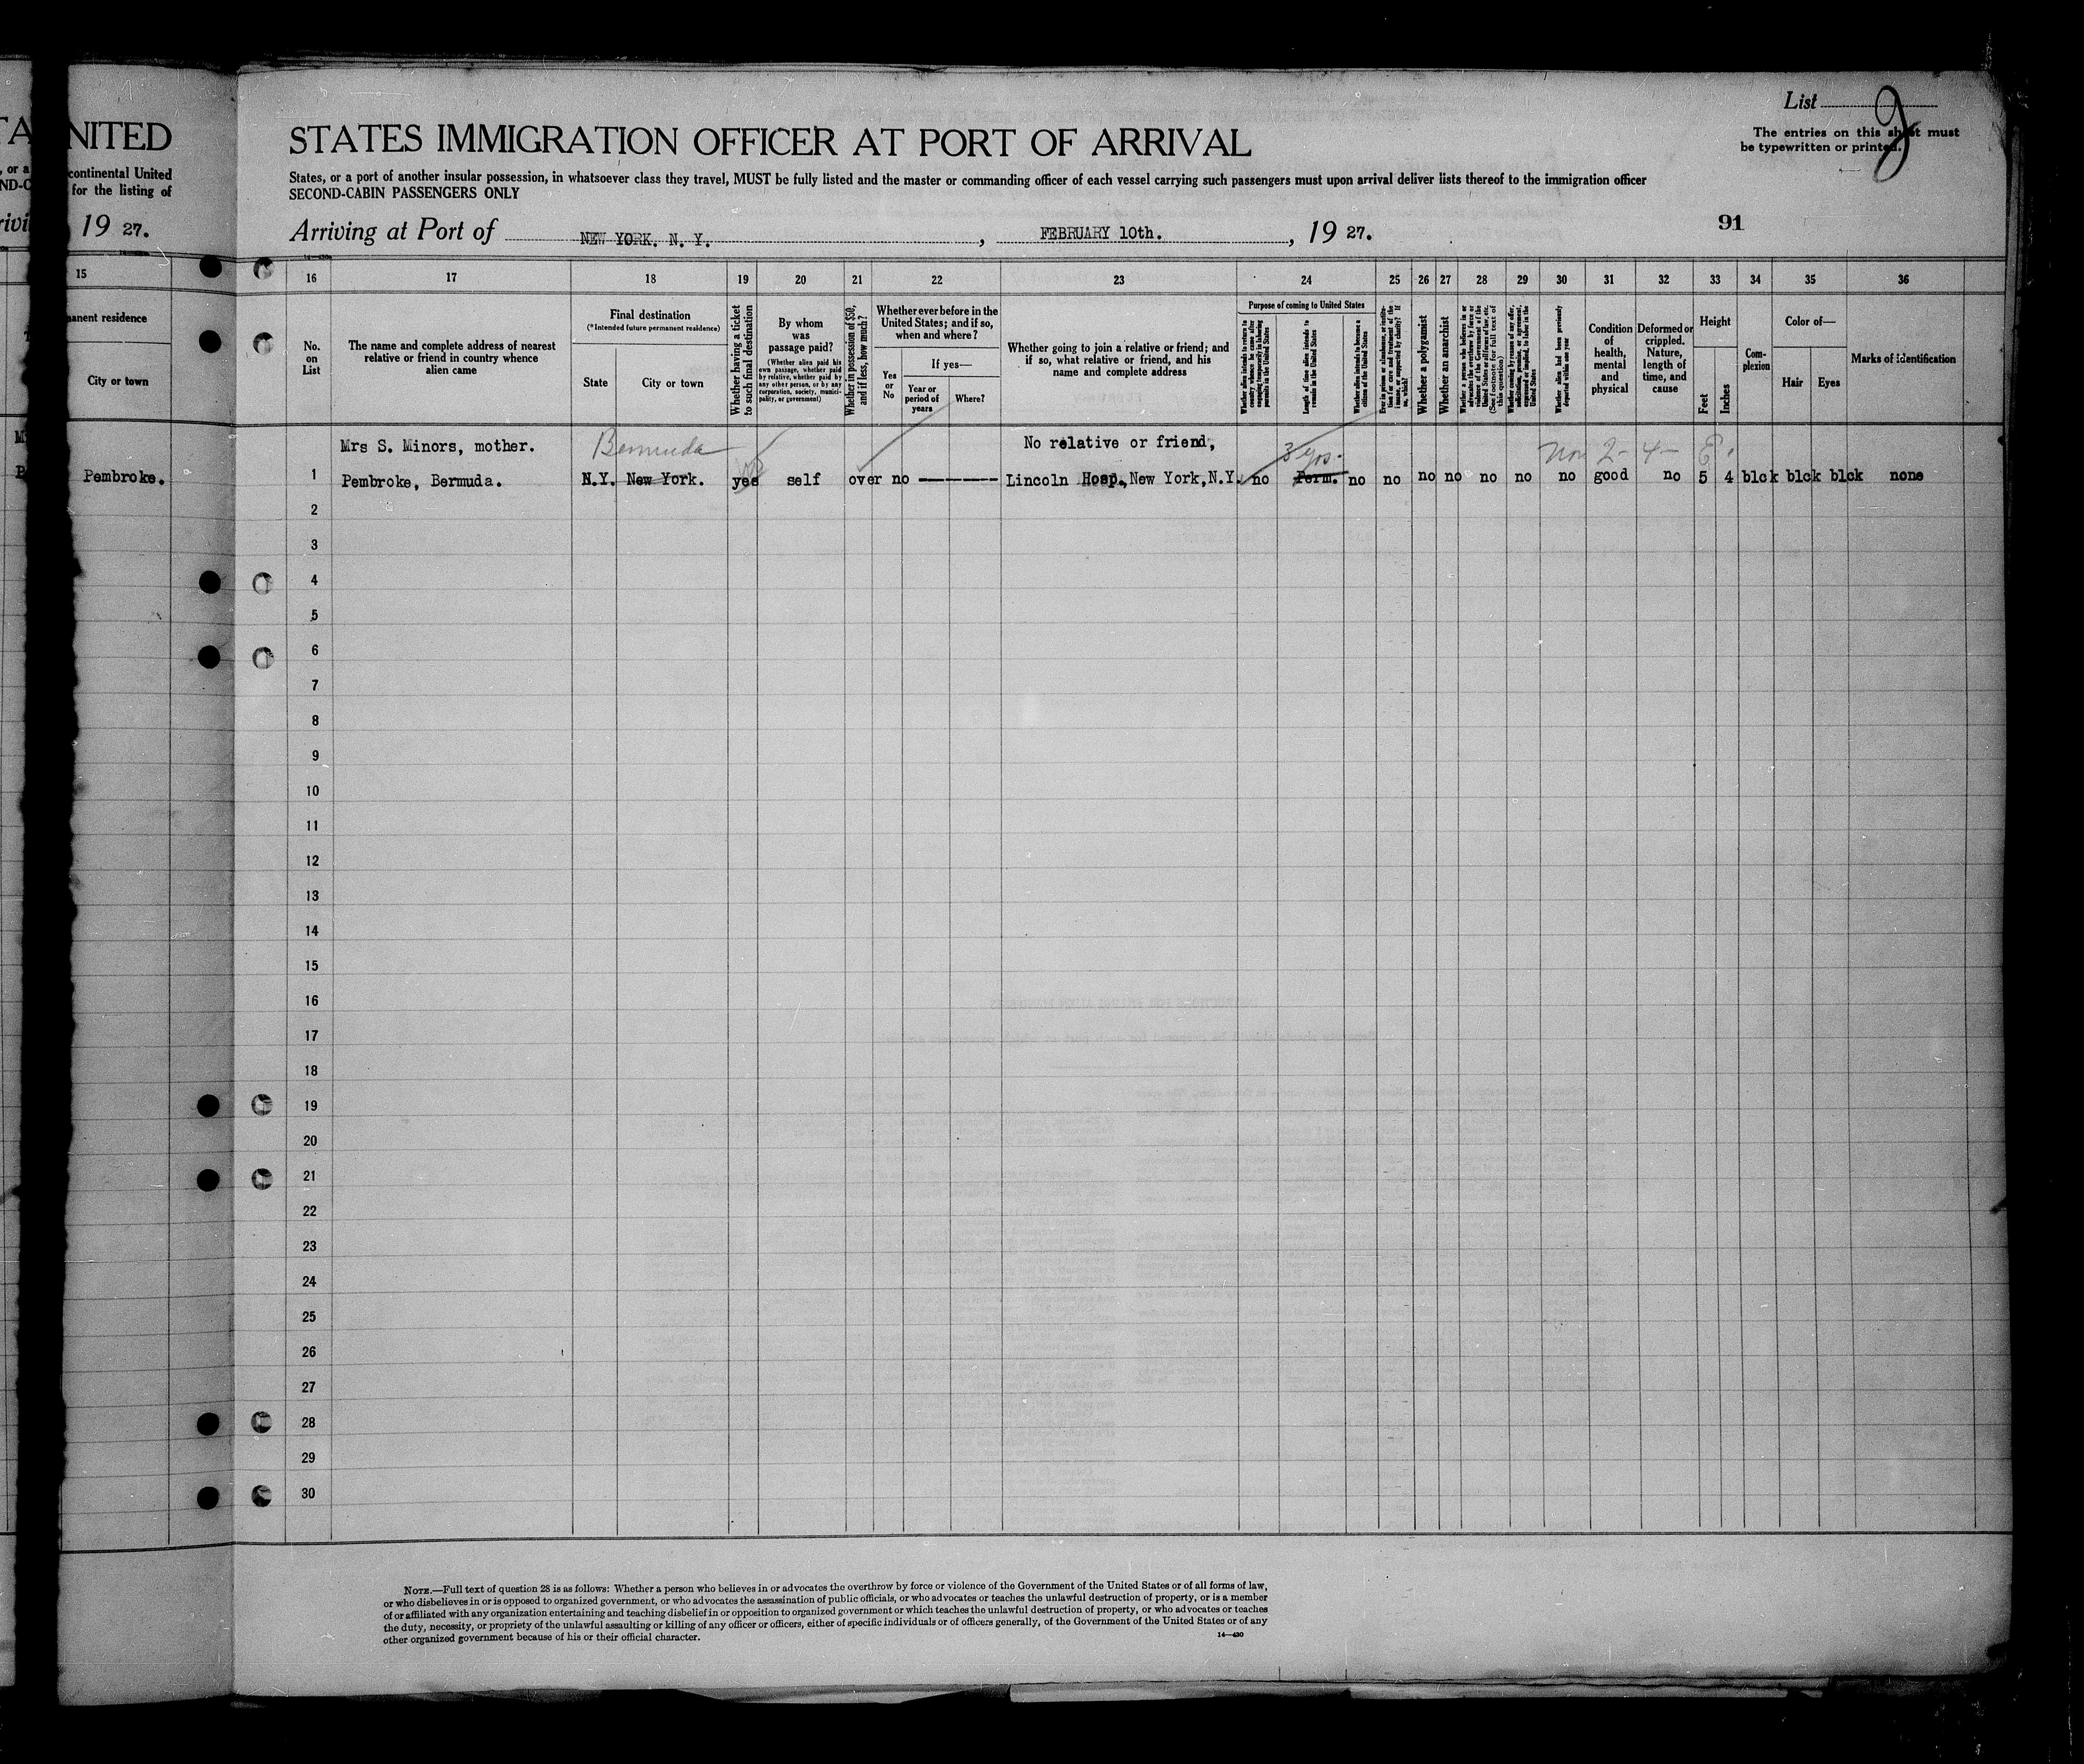 TA
NITED
, or a
continental United
ND-C
for the listing of
19 27.
15
City or town
Pembroke.
List 2
The entries on this sheet must
be typewritten or printed.
STATES IMMIGRATION OFFICER AT PORT OF ARRIVAL
States, or a port of another insular possession, in whatsoever class they travel, MUST be fully listed and the master or commanding officer of each vessel carrying such passengers must upon arrival deliver lists thereof to the immigration officer
SECOND-CABIN PASSENGERS ONLY
91
Arriving at Port of NEW YORK. N. Y. , FEBRUARY 10th. , 19 27.
16 17 18 19 20 21 22 23 24 25 26 27 28 29 30 31 32 33 34 35 36
No.
on
List
The name and complete address of nearest
relative or friend in country whence
alien came
Final destination
(*Intended future permanent residence)
State
City or town
Whether having a ticket
to such final destination
By whom
was
passage paid?
(Whether alien paid his
own passage, whether paid
by relative, whether paid by
any other person, or by any
corporation, society, munici-
pality, or government)
Whether in possession of $50,
and if less, how much?
Whether ever before in the
United States; and if so,
when and where?
Yes
or
No
If yes—
Year or
period of
years
Where?
Whether going to join a relative or friend; and
if so, what relative or friend, and his
name and complete address
Purpose of coming to United States
Whether alien intends to return to
country whence he came after
engaging temporarily in laboring
pursuits in the United States
Length of time alien intends to
remain in the United States
Whether alien intends to become a
citizen of the United States
Ever in prison or almshouse, or institu-
tion for care and treatment of the
insane, or supported by charity? If
so, which?
Whether a polygamist
Whether an anarchist
Whether a person who believes in or
advocates the overthrow by force or
violence of the Government of the
United States or all forms of law, etc.
(See footnote for full text of
this question)
Whether coming by reason of any offer,
solicitation, promise, or agreement,
expressed or implied, to labor in the
United States
Whether alien had been previously
deported within one year
Condition
of
health,
mental
and
physical
Deformed or
crippled.
Nature,
length of
time, and
cause
Height
Feet
Inches
Com-
plexion
Color of—
Hair
Eyes
Marks of identification
Mrs S. Minors, mother. Bermuda No relative or friend, 3 yrs. Non 2- 4-
1 Pembroke, Bermuda. N.Y. New York. yes self over no ———— Lincoln Hosp., New York, N.Y. no Perm. no no no no no no no good no 5 4 blck blck blck none
2
3
4
5
6
7
8
9
10
11
12
13
14
15
16
17
18
19
20
21
22
23
24
25
26
27
28
29
30
NOTE.—Full text of question 28 is as follows: Whether a person who believes in or advocates the overthrow by force or violence of the Government of the United States or of all forms of law,
or who disbelieves in or is opposed to organized government, or who advocates the assassination of public officials, or who advocates or teaches the unlawful destruction of property, or is a member
of or affiliated with any organization entertaining and teaching disbelief in or opposition to organized government or which teaches the unlawful destruction of property, or who advocates or teaches
the duty, necessity, or propriety of the unlawful assaulting or killing of any officer or officers, either of specific individuals or of officers generally, of the Government of the United States or of any
other organized government because of his or their official character.
14—430